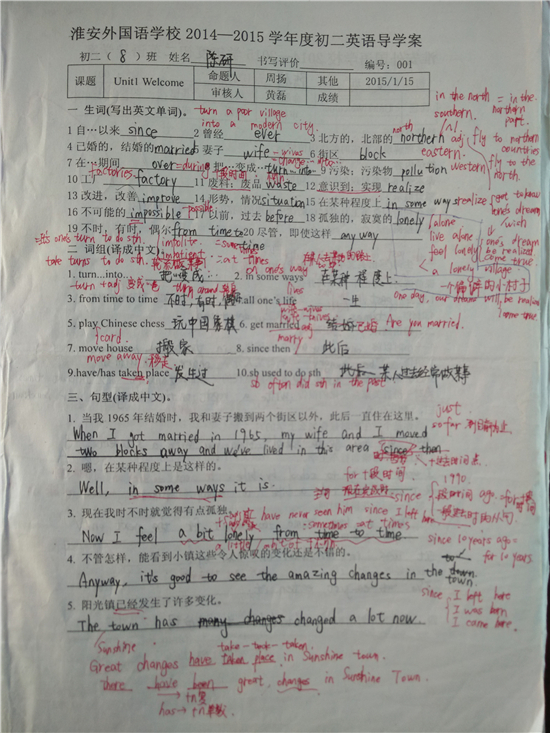 淮安外国语学校 2014—2015 学年度初二英语导学案
初二（ 8 ）班 姓名 陈研 书写评价 编号：001
课题 Unit1 Welcome 命题人 周扬 其他 2015/1/15
审核人 黄磊 成绩
in the north = in the northern part.
一 生词(写出英文单词)。 turn a poor village
into a modern city.
southern.
1 自…以来 since 2 曾经 ever 3 北方的，北部的 northern adj
north
fly to northern countries
eastern.
4 已婚的，结婚的 married 妻子 wife 6 街区 block
western
fly to the north.
7 在…期间 over =during 8 把…变成… turn…into… 9 污染；污染物 pollution
change…into…
factories
10 工厂 factory 11 废料；废品 waste 12 意识到；实现 realize
13 改进，改善 improve 14 形势，情况 situation 15 在某种程度上 in some ways
16 不可能的 impossible 17 以前，过去 before 18 孤独的，寂寞的 lonely
possible
alone
19 不时，有时，偶尔 from time to time 20 尽管，即使这样 anyway
live alone
feel lonely
a lonely village
one's dream be realized
come true.
=its one's turn to do sth
take turns to do sth
impolite
=sometimes
at times
二 词组(译成中文)。
1. turn…into… 把…变成… 2. in some ways 在某种程度上
turn + adj
turn around
3. from time to time 不时，有时，偶尔 all one's life 一生
one day, our dreams will be realized
come true
5. play Chinese chess 玩中国象棋 6. get married 结婚 Are you married.
card.
marry
7. move house 搬家 8. since then 此后
move away 搬走
9.have/has taken place 发生过 10.sb used to do sth 某人过去经常做某事
sb often did sth in the past
三、句型(译成中文)。
1. 当我 1965 年结婚时，我和妻子搬到两个街区以外，此后一直住在这里。
just
so far
When I got married in 1965, my wife and I moved
two blocks away and we've lived in this area since then
2. 嗯，在某种程度上是这样的。
for +段时间
1990.
Well, in some ways it is.
since
ago.
3. 现在我时不时就觉得有点孤独。
have never seen him since I left here
=sometimes =at times
since 10 years ago =
for 10 years
Now I feel a bit lonely from time to time
a little
4. 不管怎样，能看到小镇这些令人惊叹的变化还是不错的。
Anyway, it's good to see the amazing changes in the town.
town.
since I left here
I was born
I came here.
5. 阳光镇已经发生了许多变化。
The town has many changes changed a lot now.
Sunshine
take - took - taken
Great changes have taken place in Sunshine town.
There have been great changes in Sunshine Town.
has→